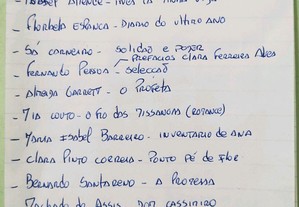 - Florbela Espanca - Diário do Último Ano
- Sá Carneiro - Solidão e Poder
Prefácios Clara Ferreira Alves
- Fernando Pessoa - Selecção
- Almeida Garrett - O Profeta
- Mia Couto - O Fio das Missangas (Romance)
- Maria Isabel Barreno - Inventário de Ana
- Clara Pinto Correia - Ponto Pé de Flor
- Bernardo Santareno - A Promessa
- Machado de Assis - Dom Casmurro